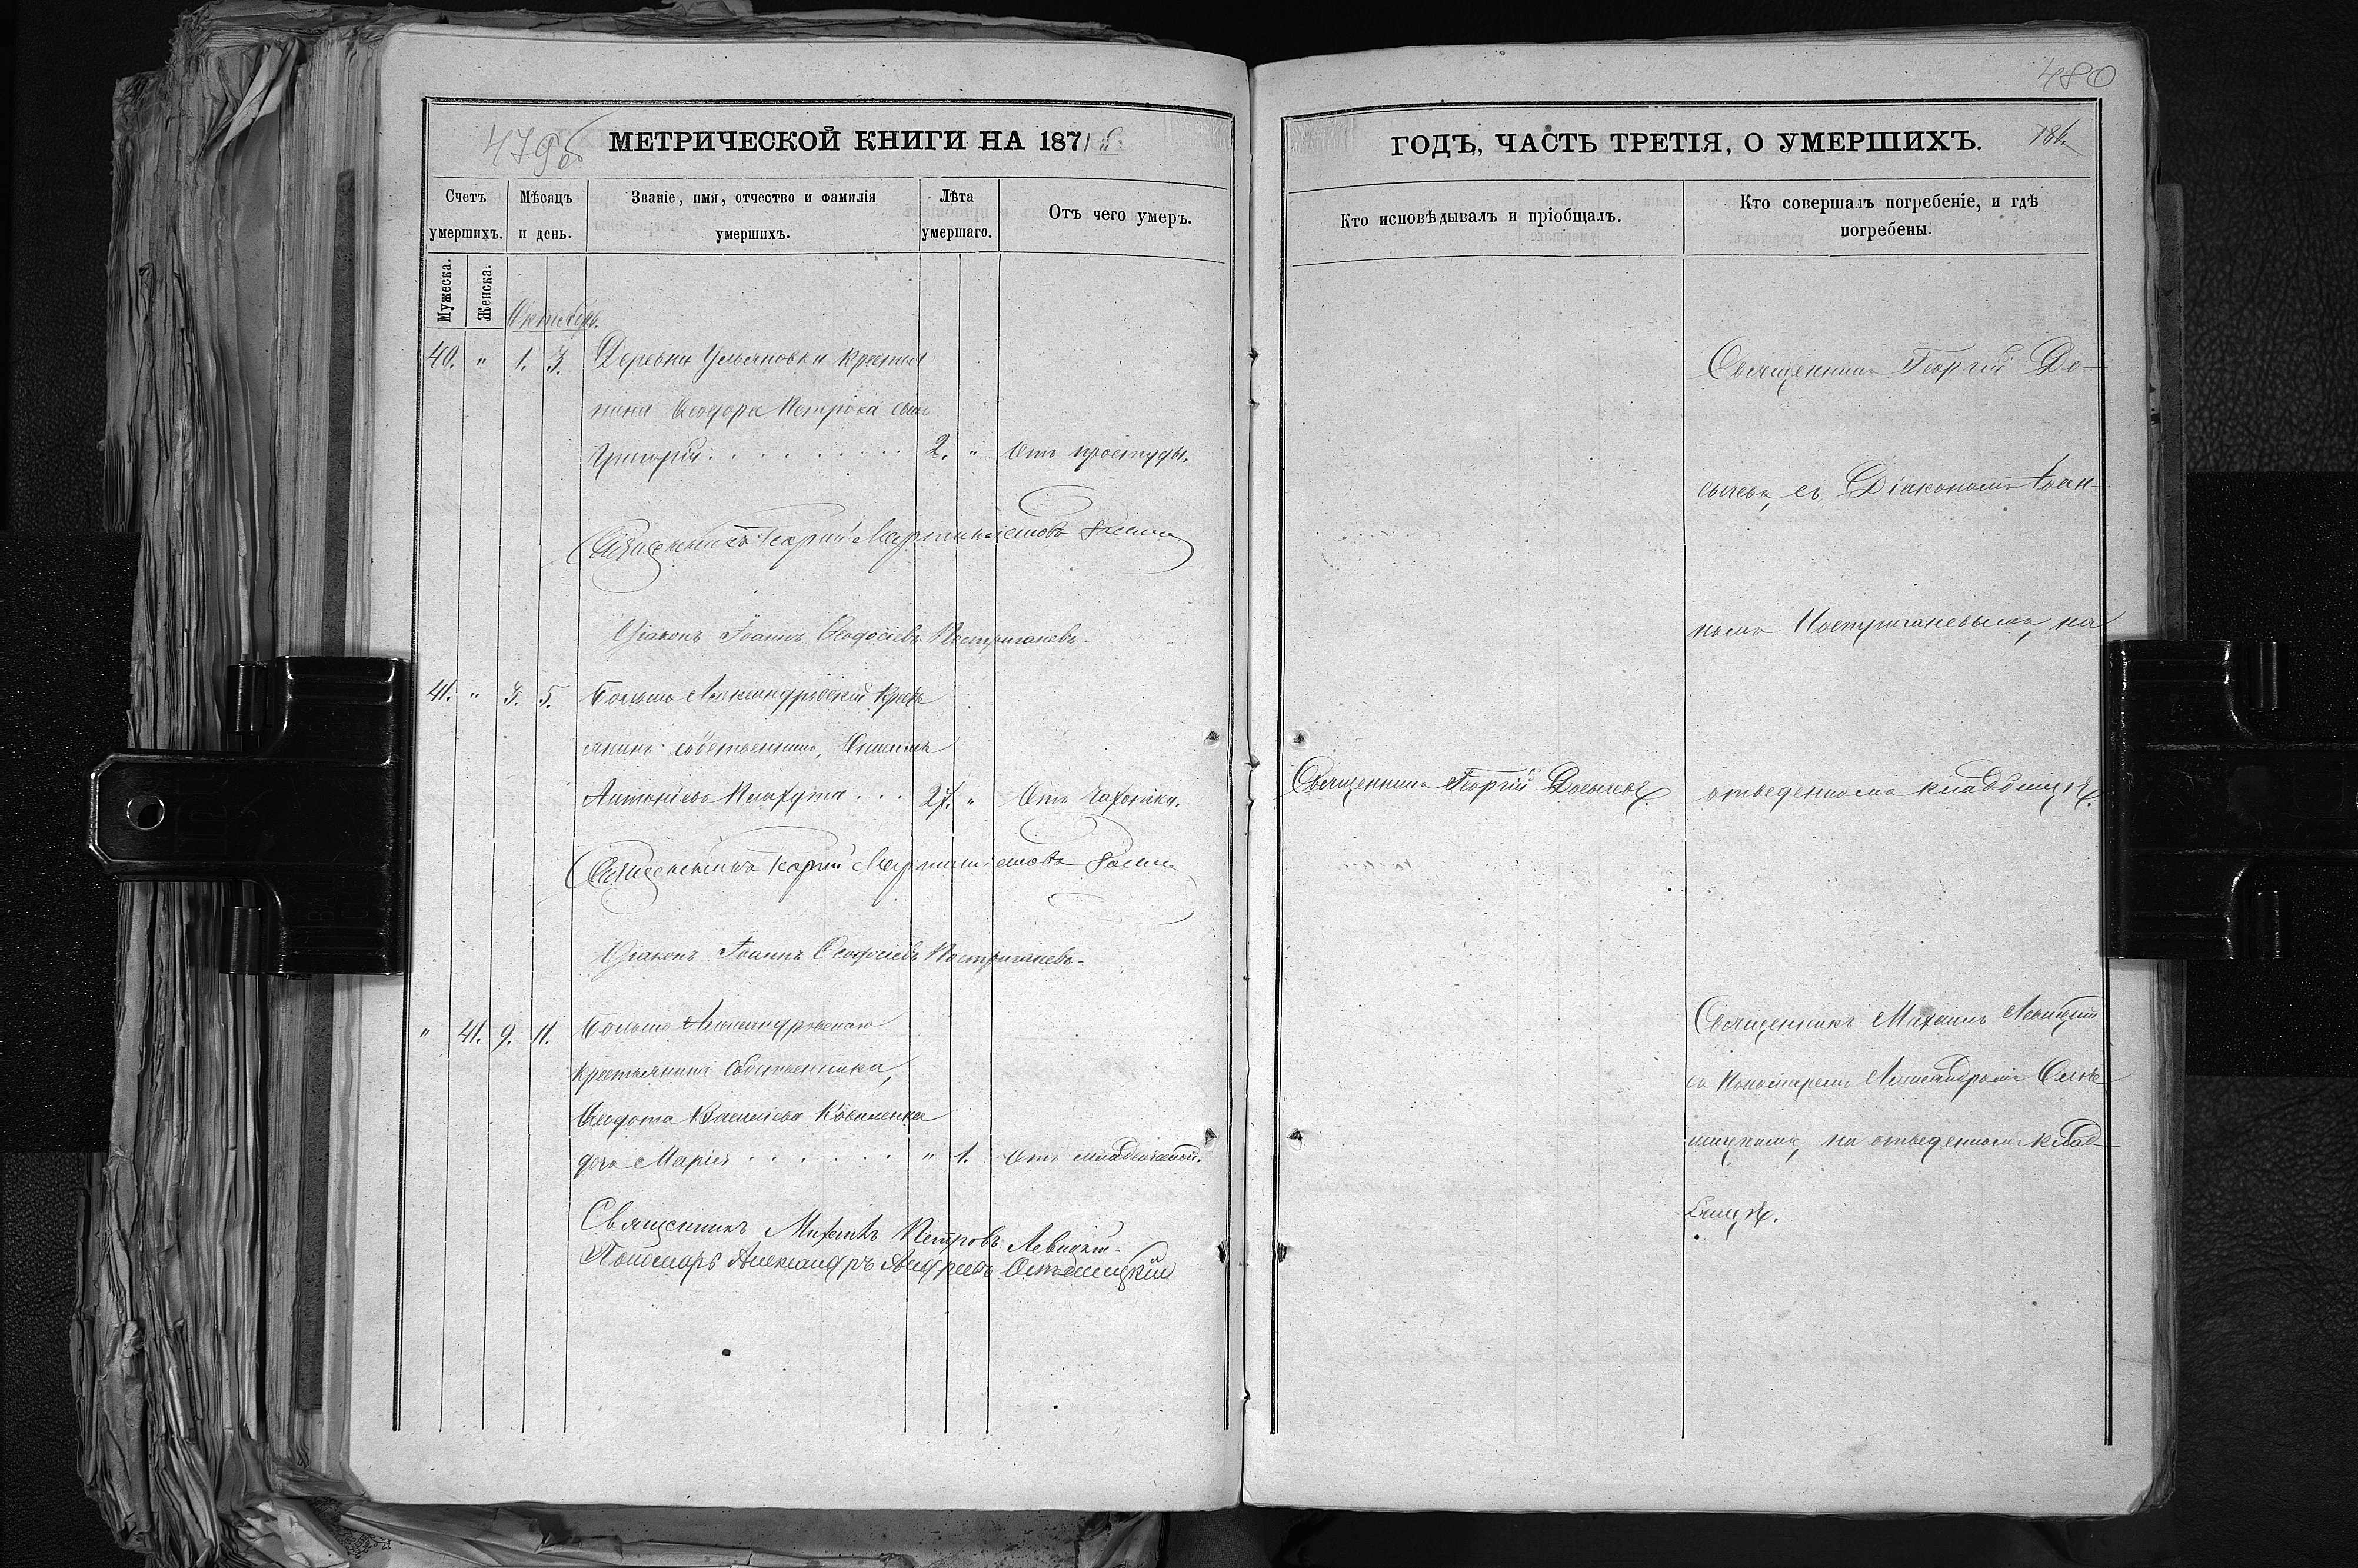 479об
МЕТРИЧЕСКОЙ КНИГИ НА 1871й
Счетъ умершихъ.
Мѣсяцъ и день.
Званіе, имя, отчество и фамилія умершихъ.
Лѣта умершаго.
Отъ чего умеръ.
Мужеска.
Женска.
Октябрь.
40. " 1. 3. Деревни Ульяновки крестья
нина Ѳеодора Петрока сынъ
Григорій . . . . . . . . . 2. " Отъ простуды.
Священникъ Георгій
Діаконъ Іоаннъ Ѳеодосіевъ Постриганевъ.
41. " 3. 5. Больше Александровскій Крест
янинъ собственникъ,
Антоніевъ . . . 27. " Отъ Чахотки.
Священникъ Георгій
Діаконъ Іоаннъ Ѳеодосіевъ Постриганевъ.
" 41. 9. 11. Больше Александровскаго
крестьянина Собственника,
Ѳеодота Василіева Коваленка
дочь Марія . . . . . . " 1. Отъ младенческой.
Священникъ Михаилъ Петровъ Левицкій
Пономарь Александръ Андреевъ
480
ГОДЪ, ЧАСТЬ ТРЕТІЯ, О УМЕРШИХЪ.
186.
Кто исповѣдывалъ и пріобщалъ.
Кто совершалъ погребеніе, и гдѣ
погребены.
Священникъ Георгій До-
сычевъ, съ Діакономъ Іоан-
номъ Постриганевымъ, на
Священникъ Георгій Досычевъ.
отведенномъ кладбищѣ.
Священникъ Михаилъ Левицкій
съ Пономаремъ Александромъ
на отведенномъ клад-
бищѣ.